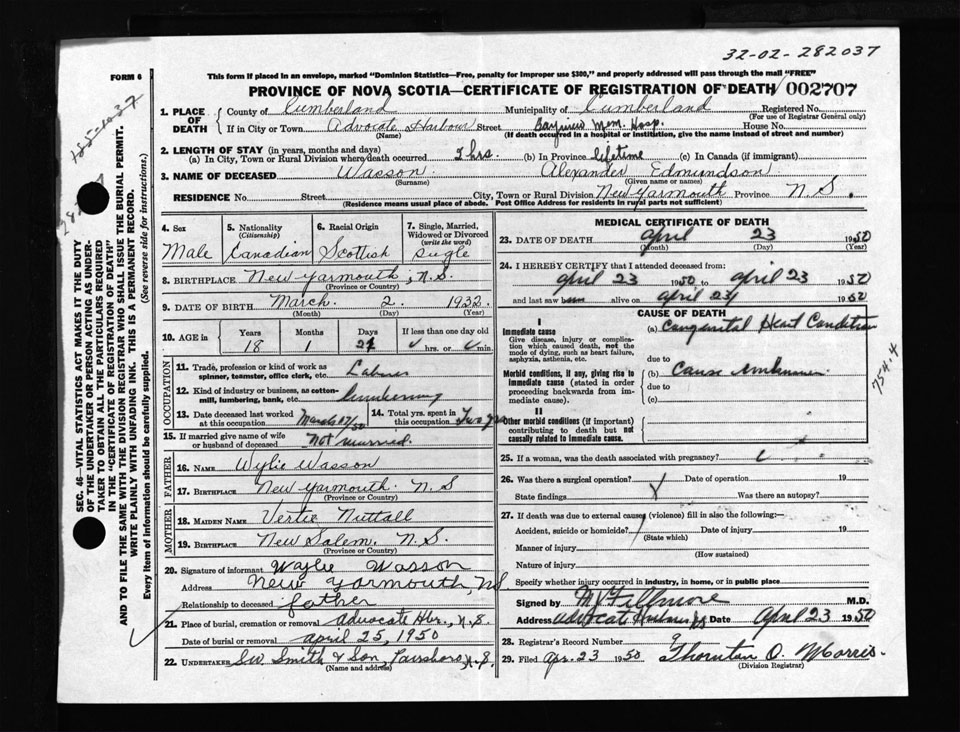 32-02-282037
FORM 6
This form if placed in an envelope, marked "Dominion Statistics—Free, penalty for improper use $300," and properly addressed will pass through the mail "FREE"
PROVINCE OF NOVA SCOTIA—CERTIFICATE OF REGISTRATION OF DEATH 002707
1. PLACE OF DEATH
County of Cumberland Municipality of Cumberland Registered No.
(For use of Registrar General only)
If in City or Town Advocate Harbour Street Mem. Hosp. House No.
(Name) (If death occurred in a hospital or institution, give the name instead of street and number)
2. LENGTH OF STAY (in years, months and days)
(a) In City, Town or Rural Division where death occurred 2 hrs. (b) In Province lifetime (c) In Canada (if immigrant)
3. NAME OF DECEASED Wasson Alexander Edmundson
(Surname) (Given name or names)
RESIDENCE No. Street City, Town or Rural Division New Yarmouth Province N.S.
(Residence means usual place of abode. Post Office Address for residents in rural parts not sufficient)
4. Sex 5. Nationality (Citizenship) 6. Racial Origin 7. Single, Married, Widowed or Divorced (write the word)
Male Canadian Scottish Single
8. BIRTHPLACE New Yarmouth, N.S.
(Province or Country)
9. DATE OF BIRTH March 2. 1932
(Month) (Day) (Year)
10. AGE in Years Months Days If less than one day old
18 1 21 hrs. or min.
OCCUPATION
11. Trade, profession or kind of work as spinner, teamster, office clerk, etc. Laborer
12. Kind of industry or business, as cotton-mill, lumbering, bank, etc. Lumbering
13. Date deceased last worked at this occupation March /50
14. Total yrs. spent in this occupation Two yrs
15. If married give name of wife or husband of deceased Not married.
FATHER
16. NAME Wylie Wasson
17. BIRTHPLACE New Yarmouth. N.S
(Province or Country)
MOTHER
18. MAIDEN NAME Vertie Nuttall
19. BIRTHPLACE New Salem. N.S.
(Province or Country)
20. Signature of informant Wylie Wasson
Address New Yarmouth, NS
Relationship to deceased father
21. Place of burial, cremation or removal Advocate Hbr., N.S.
Date of burial or removal April 25, 1950
22. UNDERTAKER Smith & Son, Parrsboro, N.S.
(Name and address)
MEDICAL CERTIFICATE OF DEATH
23. DATE OF DEATH April 23 1950
(Month) (Day) (Year)
24. I HEREBY CERTIFY that I attended deceased from:
April 23 1950 to April 23 1950
and last saw him alive on April 23 1950
CAUSE OF DEATH
I
Immediate cause
Give disease, injury or complication which caused death, not the mode of dying, such as heart failure, asphyxia, asthenia, etc.
(a) Congenital Heart Condition
due to
Morbid conditions, if any, giving rise to immediate cause (stated in order proceeding backwards from immediate cause).
(b) Cause unknown
due to
(c)
II
Other morbid conditions (if important) contributing to death but not causally related to immediate cause.
754.4
25. If a woman, was the death associated with pregnancy?
26. Was there a surgical operation? Date of operation 19
State findings Was there an autopsy?
27. If death was due to external causes (violence) fill in also the following:—
Accident, suicide or homicide? Date of injury 19
(State which)
Manner of injury
(How sustained)
Nature of injury
Specify whether injury occurred in industry, in home, or in public place
Signed by Fillmore M.D.
Address Advocate Harbour NS Date April 23 1950
28. Registrar's Record Number 9
29. Filed Apr. 23 1950 Thornton O. Morris.
(Division Registrar)
SEC. 46—VITAL STATISTICS ACT MAKES IT THE DUTY OF THE UNDERTAKER OR PERSON ACTING AS UNDERTAKER TO OBTAIN ALL THE PARTICULARS REQUIRED IN THE "CERTIFICATE OF REGISTRATION OF DEATH" AND TO FILE THE SAME WITH THE DIVISION REGISTRAR WHO SHALL ISSUE THE BURIAL PERMIT.
WRITE PLAINLY WITH UNFADING INK. THIS IS A PERMANENT RECORD.
Every item of information should be carefully supplied. (See reverse side for instructions.)